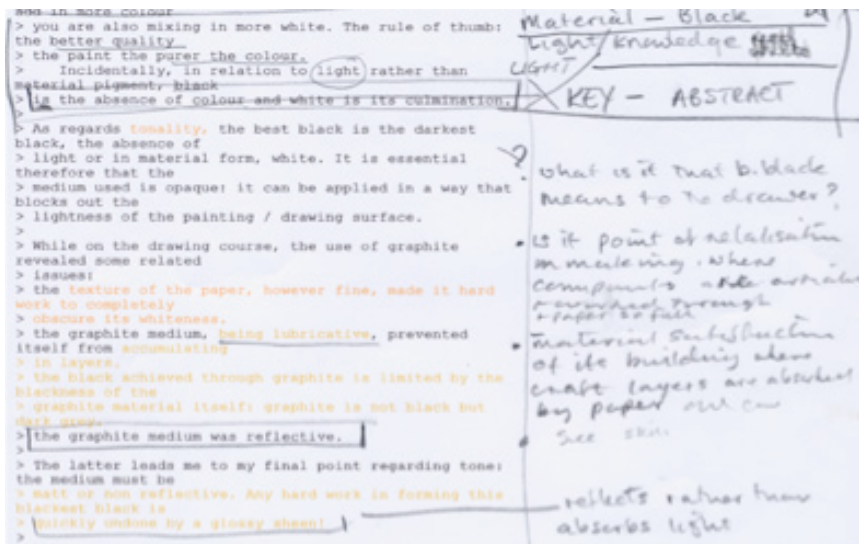 add in more colour
> you are also mixing in more white. The rule of thumb:
the better quality
> the paint the purer the colour.
>     Incidentally, in relation to light rather than
material pigment, black
> is the absence of colour and white is its culmination.
>
> As regards tonality, the best black is the darkest
black, the absence of
> light or in material form, white. It is essential
therefore that the
> medium used is opaque: it can be applied in a way that
blocks out the
> lightness of the painting / drawing surface.
>
> While on the drawing course, the use of graphite
revealed some related
> issues:
> the texture of the paper, however fine, made it hard
work to completely
> obscure its whiteness.
> the graphite medium, being lubricative, prevented
itself from accumulating
> in layers.
> the black achieved through graphite is limited by the
blackness of the
> graphite material itself: graphite is not black but
dark gray.
> the graphite medium was reflective.
>
> The latter leads me to my final point regarding tone:
the medium must be
> matt or non reflective. Any hard work in forming this
blackest black is
> quickly undone by a glossy sheen!
>
Material - Black
Light/knowledge
LIGHT
KEY - ABSTRACT
? what is it that b.black
means to the drawer?
• is it point of
in making. where
components are
through
+ paper so full
• material
of its building where
layers are absorbed
by paper and can
• see
reflects rather than
absorbs light